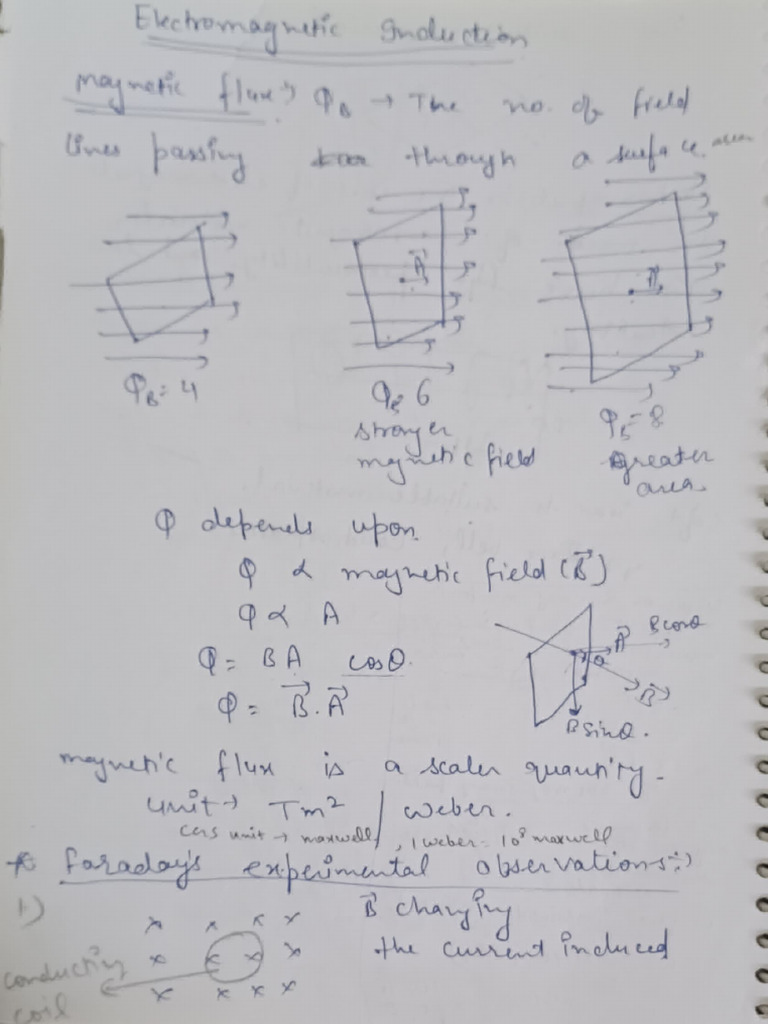 Electromagnetic Induction
magnetic flux :) Φ_B → The no. of field
lines passing through a surface area
A⃗
A⃗
Φ_B = 4
Φ_B = 6
stronger
magnetic field
Φ_B = 8
greater
area
Φ depends upon
Φ ∝ magnetic field (B⃗)
Φ ∝ A
Φ = BA cosθ.
Φ = B⃗.A⃗
A⃗ B cosθ
θ
B⃗
B sinθ.
magnetic flux is a scaler quantity.
unit → Tm² / weber.
CGS unit → maxwell, 1 weber = 10⁸ maxwell
* faraday's experimental observations :)
1) B⃗ changing
the current induced
x x x x
x x x x
x x x x
conducting
coil